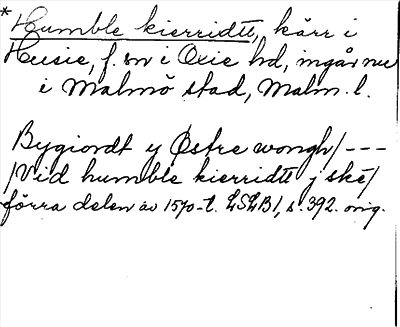 *Humble kierridtt, kärr i
Husie, f. sn i Oxie hd, ingår nu
i Malmö stad, Malm. l.
Bygiordt y Østre wongh/---
/Vid humble kierridtt j skè/
förra delen av 1570-t. LSLB1, s. 392. orig.